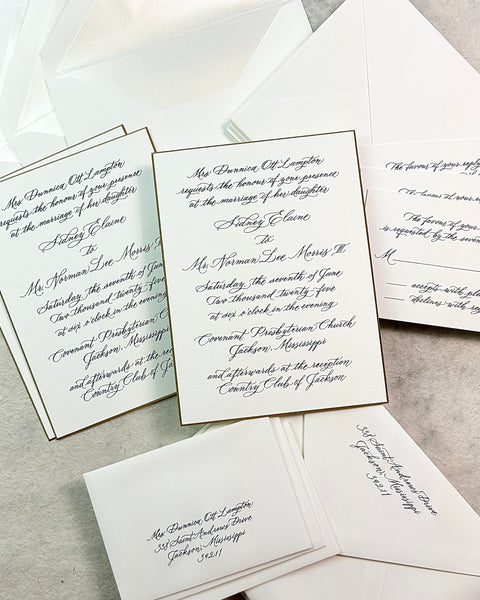 Mrs. Dunnica Ott Lampton
requests the honour of your presence
at the marriage of her daughter
Sidney Elaine
To
Mr. Norman Lee Morris III
Saturday, the seventh of June
Two thousand twenty-five
at six o'clock in the evening
Covenant Presbyterian Church
Jackson, Mississippi
and afterwards at the reception
Country Club of Jackson
Mrs. Dunnica Ott Lampton
requests the honour of your presence
at the marriage of her daughter
Sidney Elaine
To
Mr. Norman Lee Morris III
Saturday, the seventh of June
Two thousand twenty-five
at six o'clock in the evening
Covenant Presbyterian Church
Jackson, Mississippi
and afterwards at the reception
Country Club of Jackson
The favour of your reply
The favour of your
The favour of your
is requested by the
M
accepts with
declines with
Mrs. Dunnica Ott Lampton
338 Saint Andrews Drive
Jackson, Mississippi
39211
338 Saint Andrews Drive
Jackson, Mississippi
39211